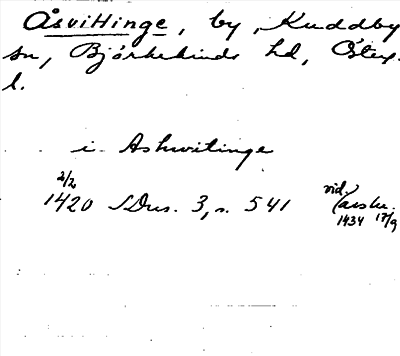 Åsvittinge, by, Kuddby
sn, Björkekinds hd, Östergl.
l.
i Ashwitinge
2/2
1420 SDns. 3, s. 541
vid.
avskr.
1434 17/9